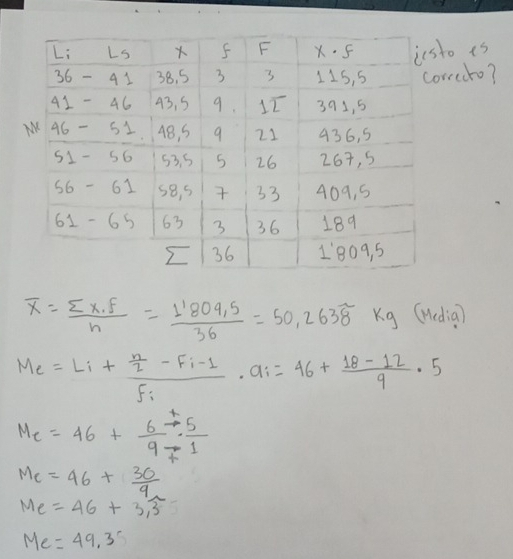 Li Ls x f F x · f
36 - 41 38,5 3 3 115,5
41 - 46 43,5 9 12 391,5
Me 46 - 51 48,5 9 21 436,5
51 - 56 53,5 5 26 267,5
56 - 61 58,5 7 33 409,5
61 - 65 63 3 36 189
Σ 36 1'809,5
¿esto es
correcto?
x̄ = Σx.f / n = 1'809,5 / 36 = 50,2638 Kg (Media)
Me = Li + (n/2 - Fi-1) / fi . ai = 46 + (18 - 12) / 9 . 5
Me = 46 + 6/9 · 5/1
Me = 46 + 30/9
Me = 46 + 3,3
Me = 49,3